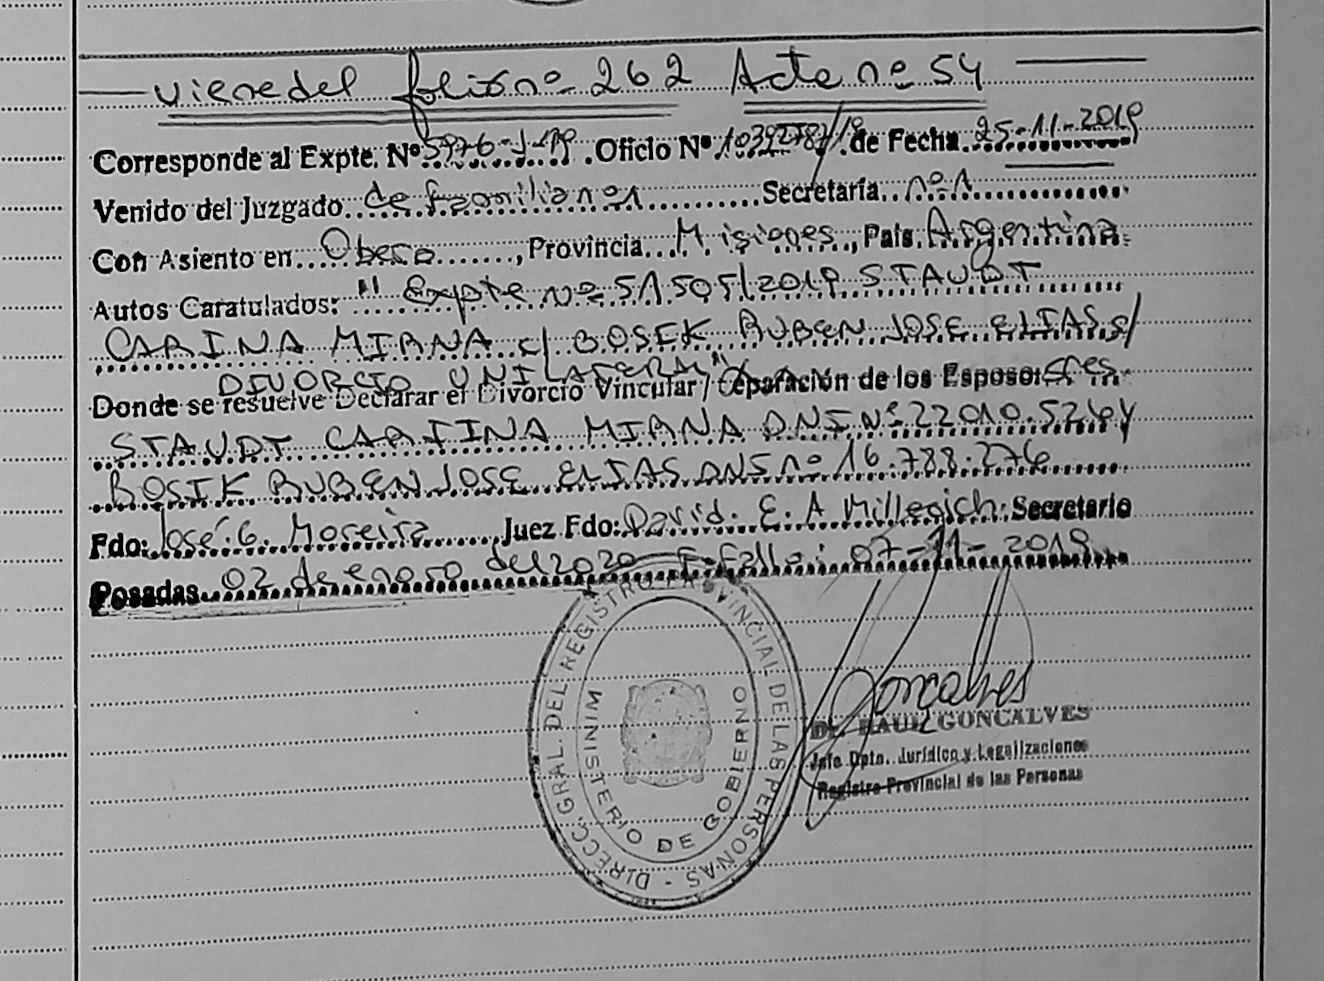 Viene del folio nº 262 Acta nº 54
Corresponde al Expte. Nº 5976-J-19. Oficio Nº 10392787/19 de Fecha 25-11-2019
Venido del Juzgado de familia nº1 Secretaría nº1
Con Asiento en Obera, Provincia Misiones, País Argentina
Autos Caratulados: "Expte nº 51505/2019 STAUDT
CARINA MIRNA c/ BOSIK RUBEN JOSE ELIAS s/
DIVORCIO UNILATERAL"
Donde se resuelve Declarar el Divorcio Vincular / Separación de los Esposos: Sres.
STAUDT CARINA MIRNA DNI Nº 22010.526 y
BOSIK RUBEN JOSE ELIAS DNI nº 16.788.276
Fdo: José G. Moreira Juez Fdo: David. E. A Millegich: Secretario
Posadas 02 de enero del 2020 F. Fallo: 07-11-2019
DIRECC. GRAL. DEL REGISTRO PROVINCIAL DE LAS PERSONAS -
MINISTERIO DE GOBIERNO
Goncalves
Dr. RAUL GONCALVES
Jefe Dpto. Jurídico y Legalizaciones
Registro Provincial de las Personas